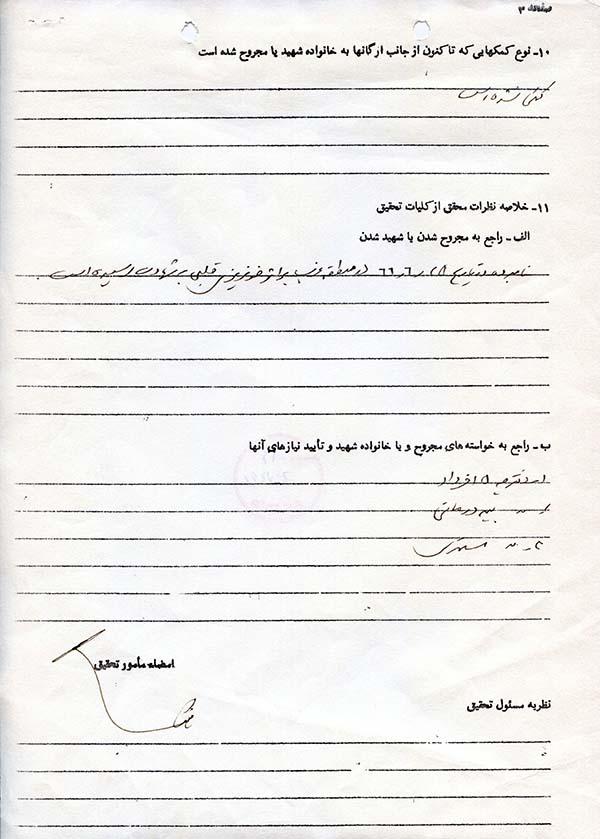 صفحه ۳
۱۰ـ نوع کمکهایی که تاکنون از جانب ارگانها به خانواده شهید یا مجروح شده است
کمکی نشده است
۱۱ـ خلاصه نظرات محقق از کلیات تحقیق
الف ـ راجع به مجروح شدن یا شهید شدن
نامبرده در تاریخ ۶۶ در منطقه غرب بر اثر خونریزی قلبی به شهادت رسیده است
ب ـ راجع به خواسته‌های مجروح و یا خانواده شهید و تأیید نیازهای آنها
۱ـ دفترچه
۲ـ بیمه درمانی
۳ـ
امضاء مأمور تحقیق
نظریه مسئول تحقیق